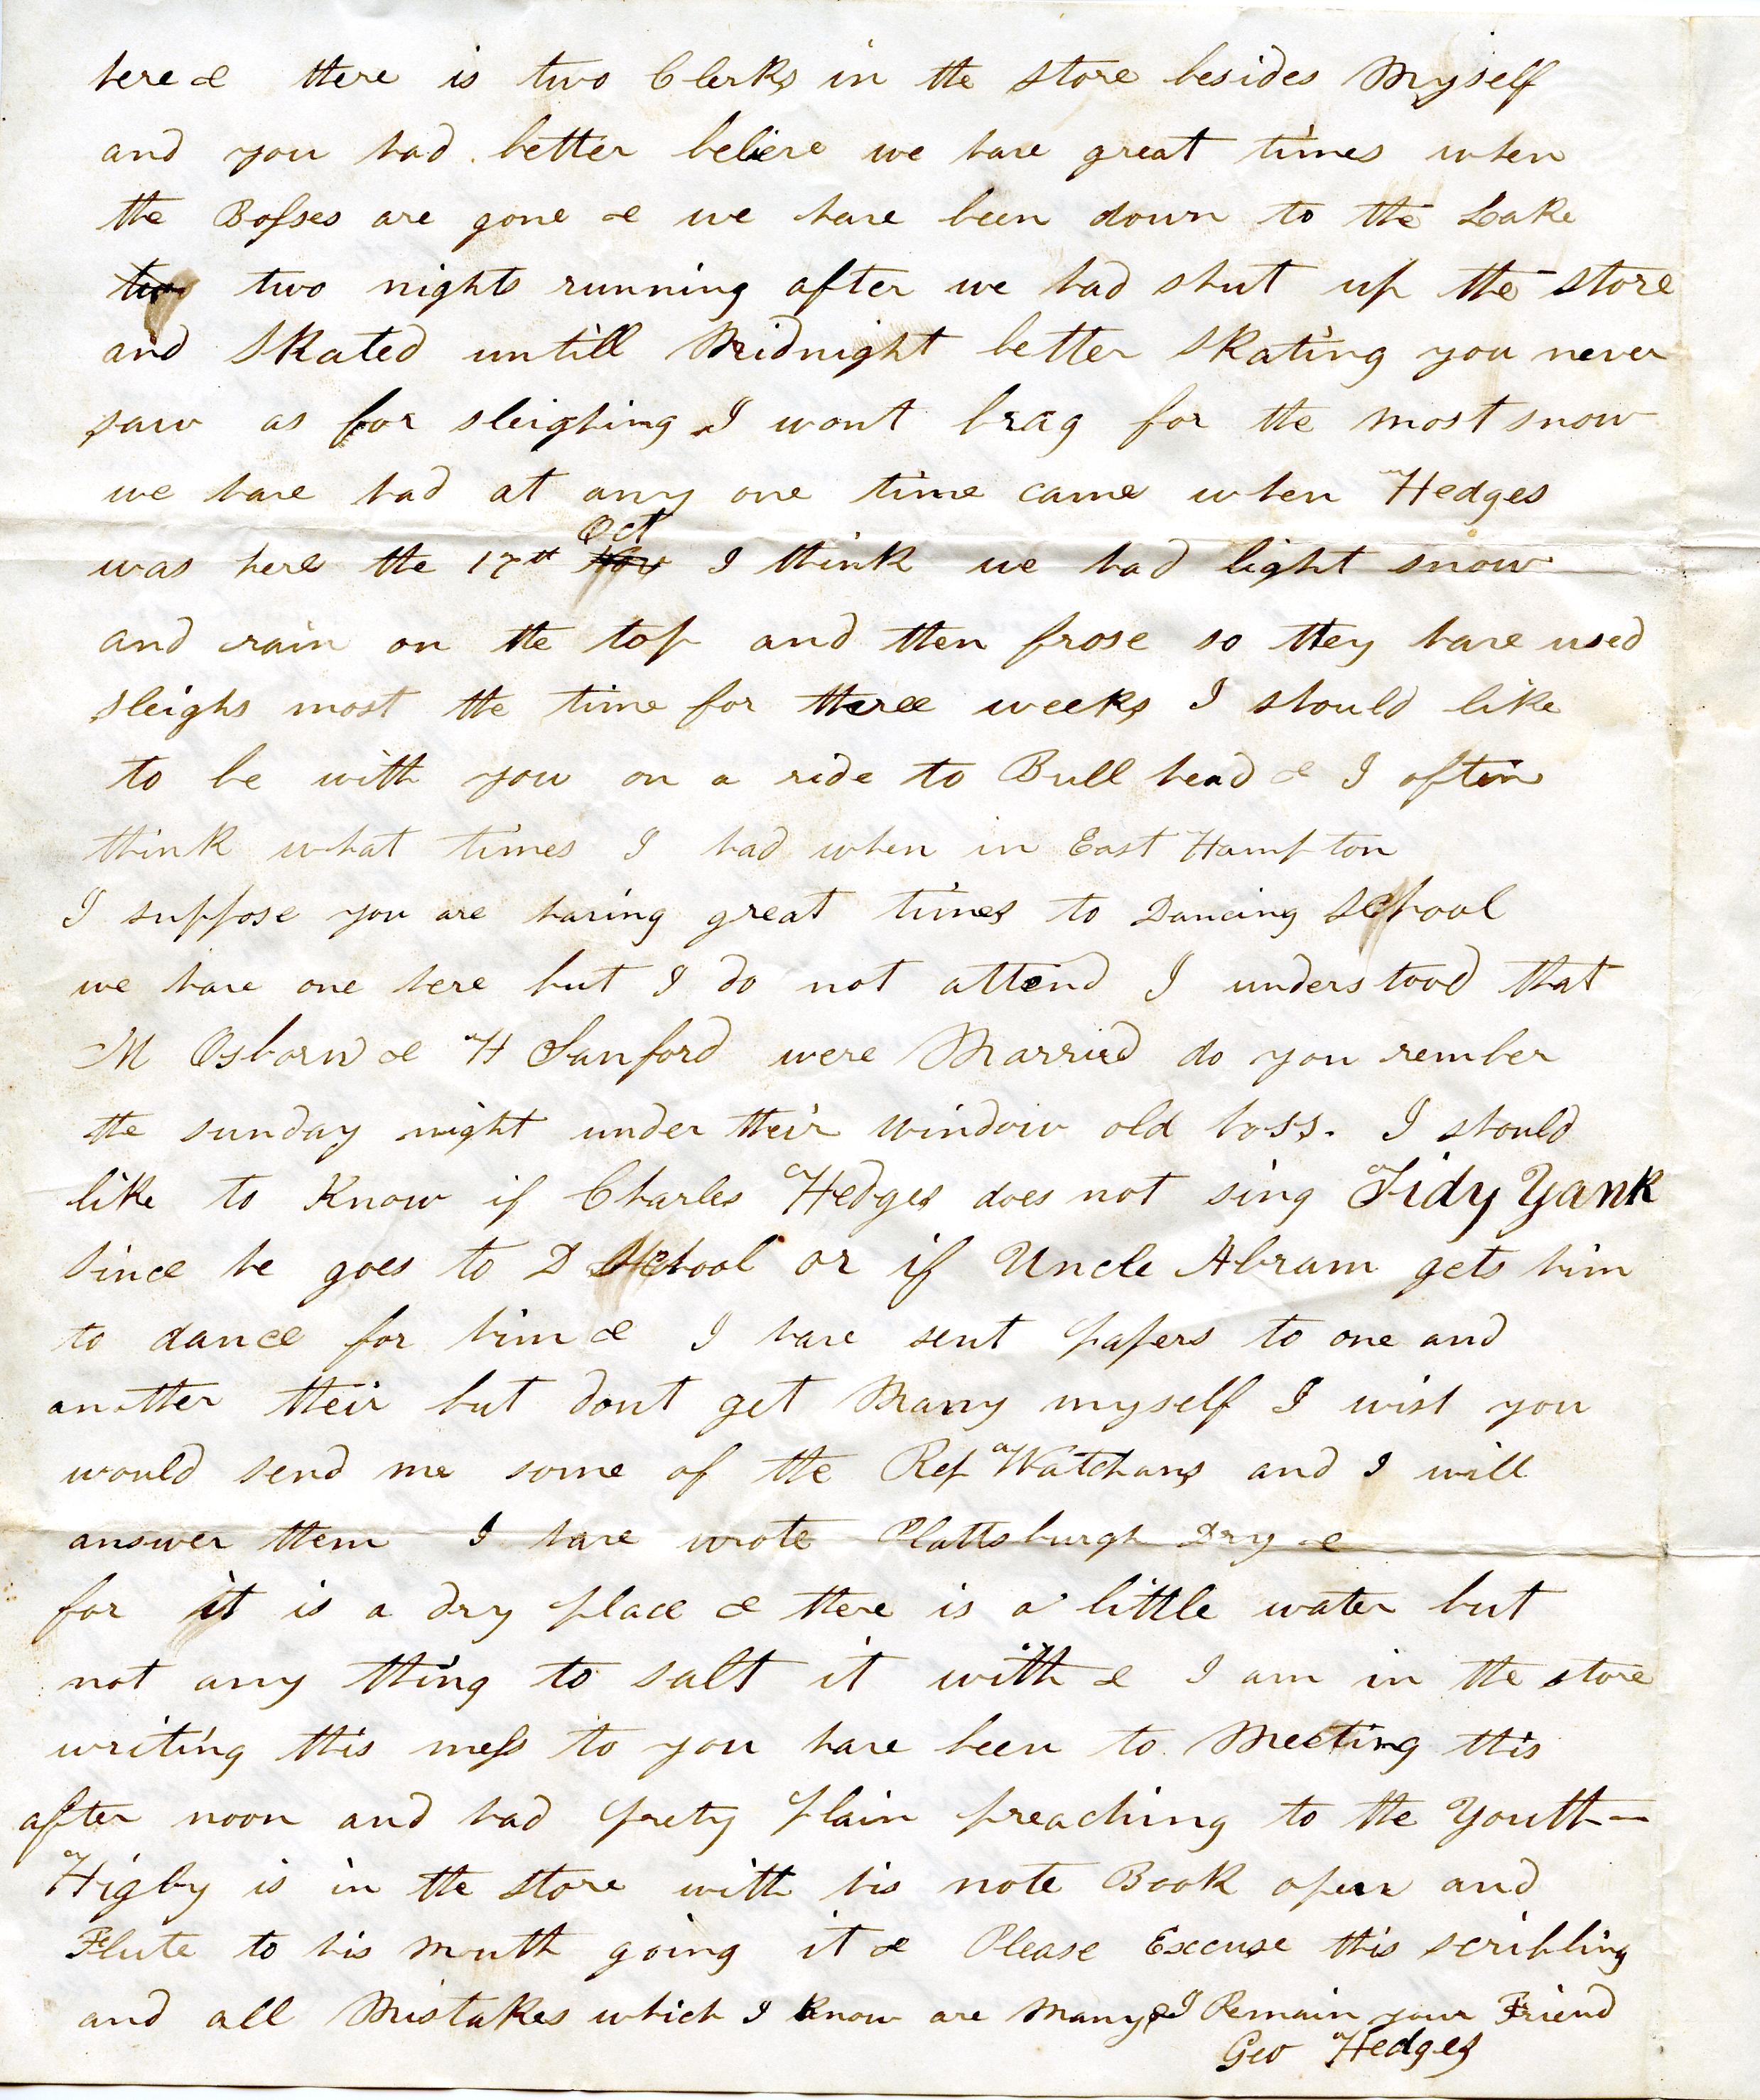 here & there is two Clerks in the store besides Myself
and you had better believe we have great times when
the Bosses are gone & we have been down to the Lake
two two nights running after we had shut up the store
and Skated untill Midnight better Skating you never
saw as for sleighing I wont brag for the most snow
we have had at any one time came when Hedges
was here the 17th Nov Oct I think we had light snow
and rain on the top and then frose so they have used
sleighs most the time for three weeks I should like
to be with you on a ride to Bull head & I often
think what times I had when in East Hampton
I suppose you are having great times to Dancing School
we have one here but I do not attend I understood that
M Osborn & H Sanford were Married do you rember
the sunday night under their window old hoss. I should
like to Know if Charles Hedges does not sing Tidy Yank
since he goes to D School or if Uncle Abram gets him
to dance for him & I have sent papers to one and
another their but dont get Many myself I wish you
would send me some of the Rep Watchans and I will
answer them I have wrote Plattsburgh Dry &
for it is a dry place & there is a little water but
not any thing to salt it with & I am in the store
writing this mess to you have been to Meeting this
after noon and had prety plain preaching to the Youth—
Higby is in the store with his note Book open and
Flute to his mouth going it & Please Excuse this scribling
and all Mistakes which I know are many & I Remain your Friend
Geo Hedges